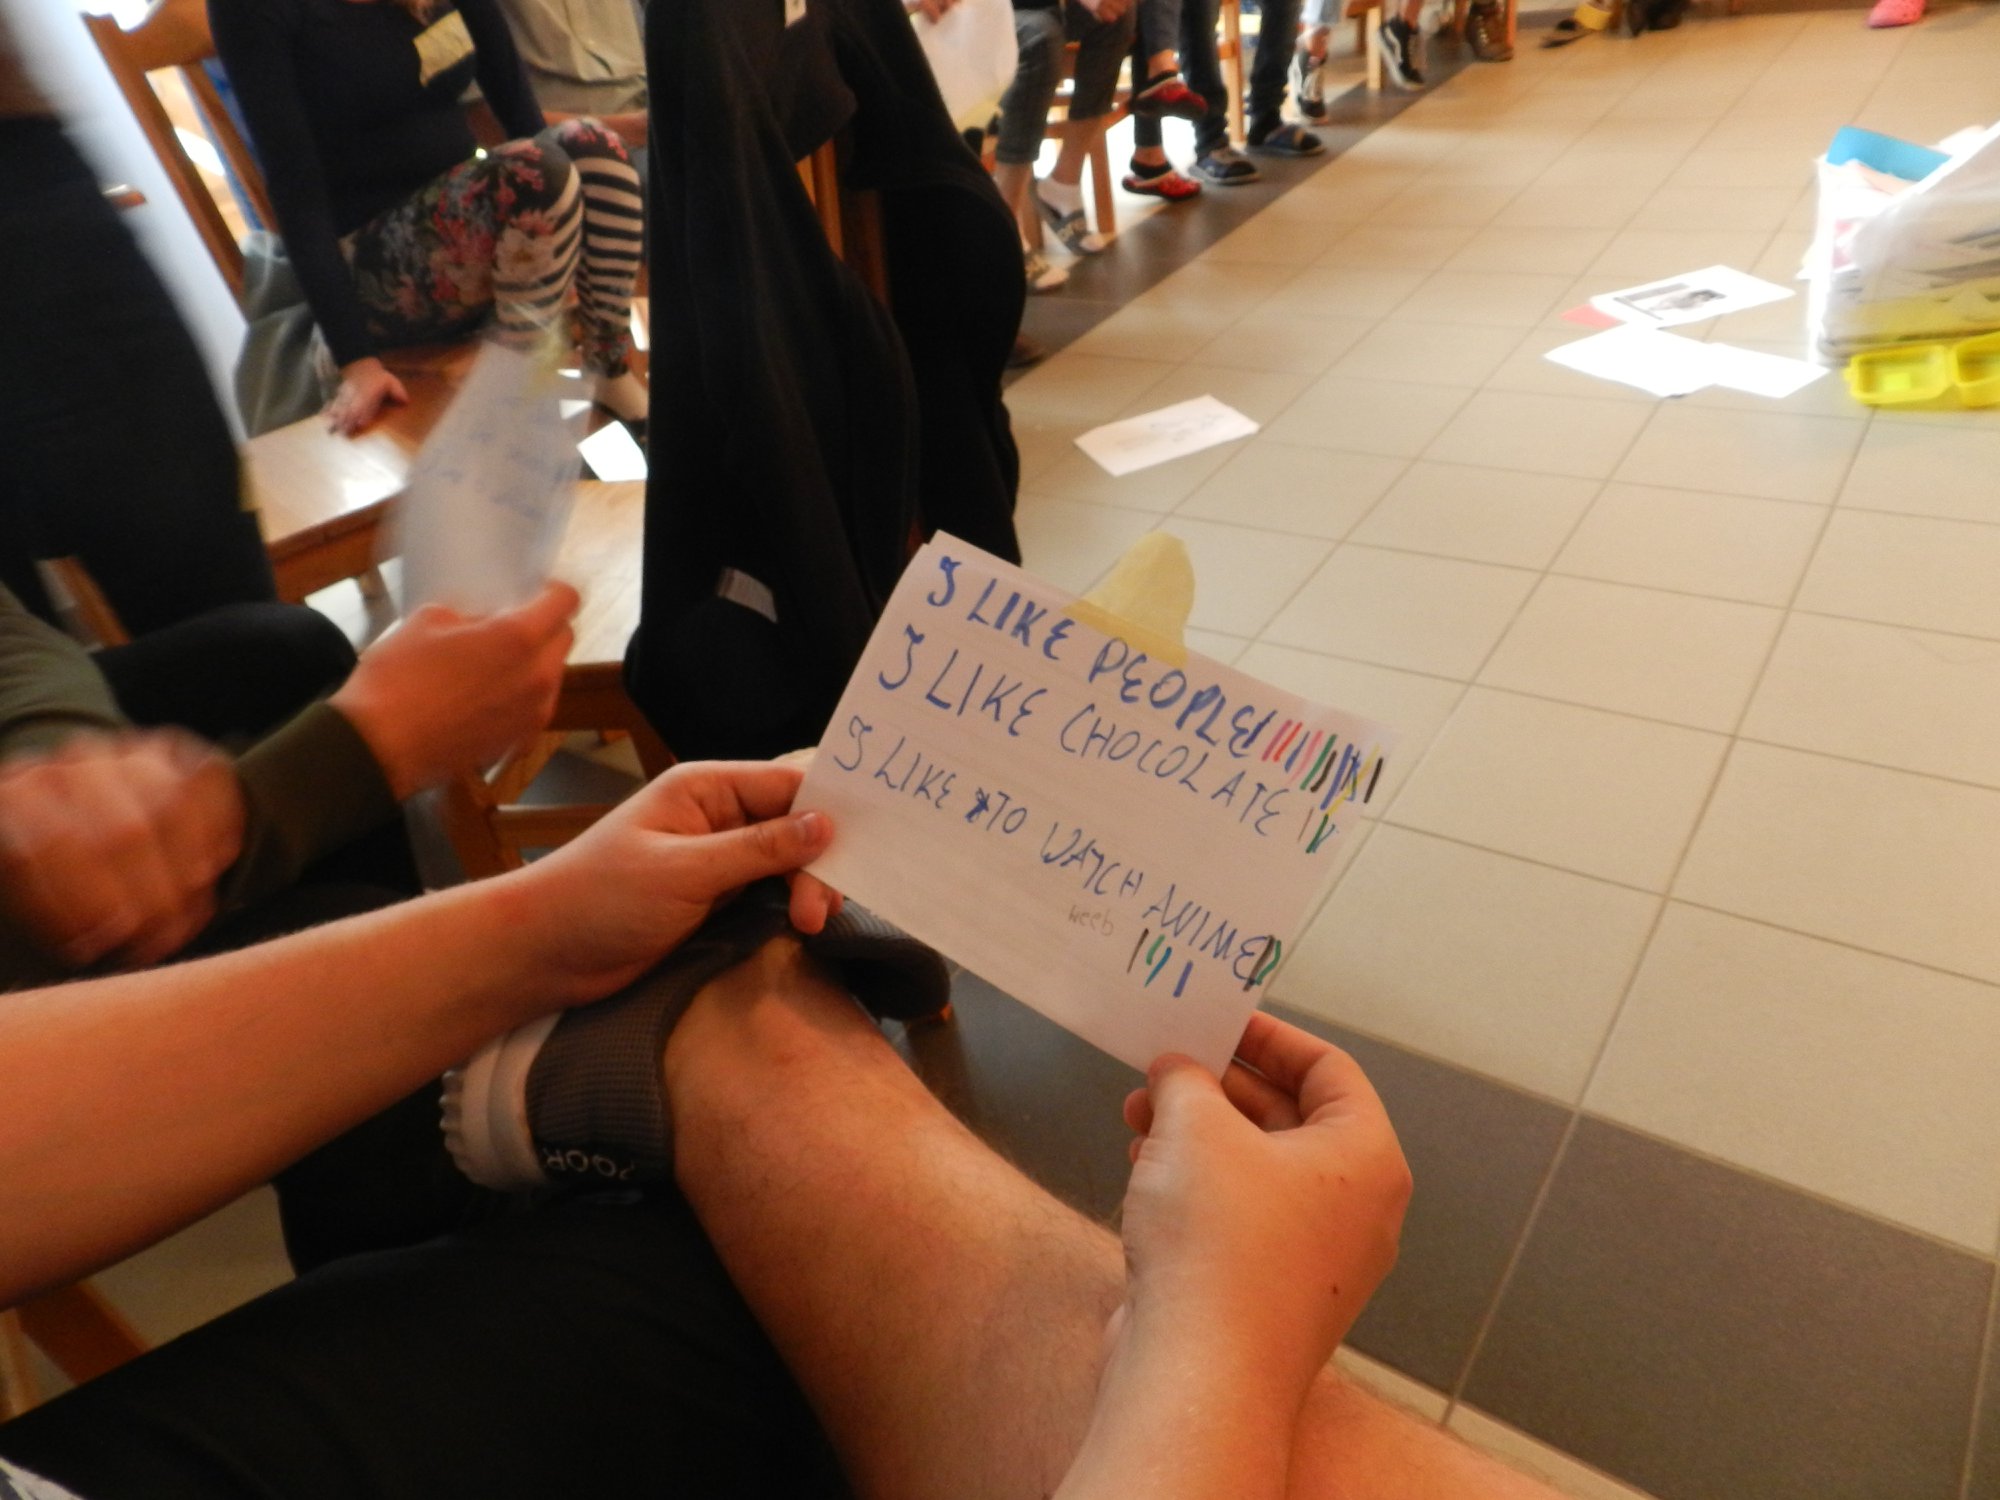 I LIKE PEOPLE
I LIKE CHOCOLATE
I LIKE TO WATCH ANIME
weeb